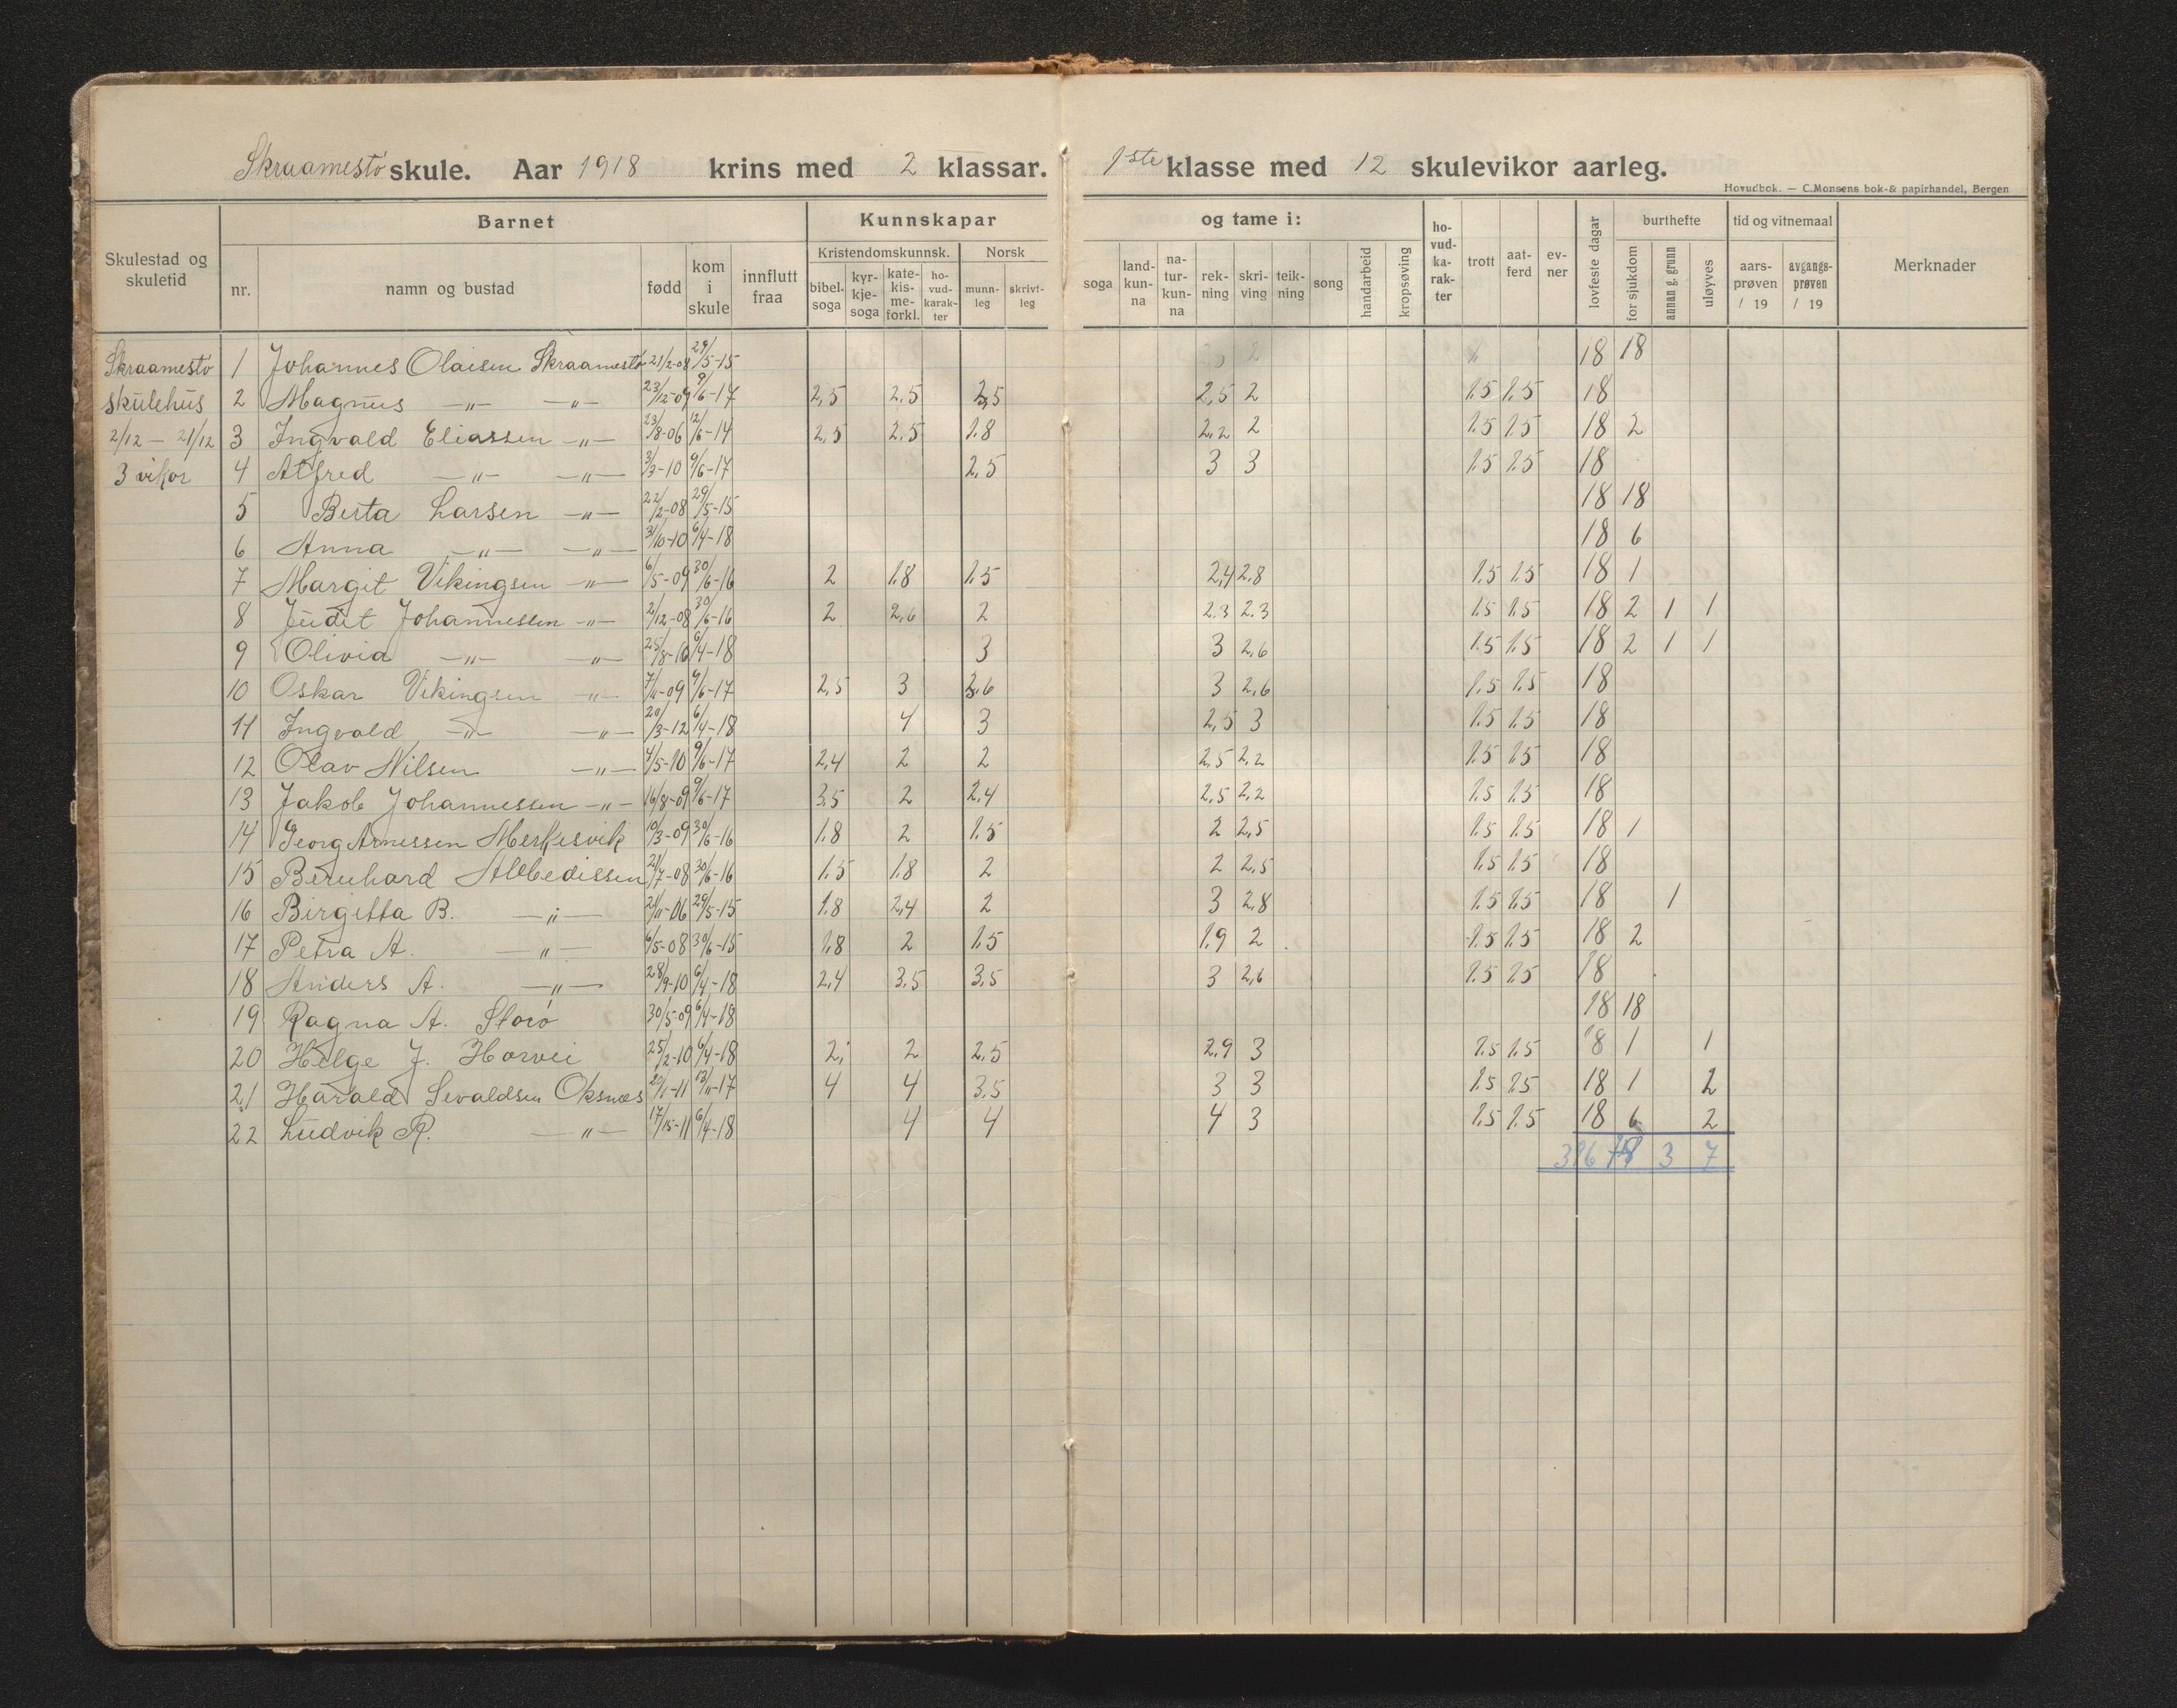 Skraamestö skule. Aar 1918 krins med 2 klassar. 1ste klasse med 12 skulevikor aarleg.
Hovudbok. — C. Monsens bok- & papirhandel, Bergen
Skulestad og skuletid
Barnet
nr. namn og bustad født kom i skule innflutt fraa
Kunnskapar og tame i:
Kristendomskunnsk. Norsk
bibel-soga kyr-kje-soga kate-kis-me-forkl. ho-vud-karak-ter munn-leg skrivt-leg
soga land-kun-na na-tur-kun-na rek-ning skri-ving teik-ning song handarbeid kropsøving
ho-vud-ka-rak-ter trott aat-ferd ev-ner lovfeste dagar
burthefte
for sjukdom annan g. grunn uløyves
tid og vitnemaal
aars-prøven / 19 avgangs-prøven / 19
Merknader
Skraamestö 1 Johannes Olaisen Skraamestö 21/2-08 29/5-15 18 18
skulehus 2 Magnus —"— —"— 23/12-09 9/6-17 2,5 2,5 2,5 2,5 2 1.5 1.5 18
2/12 — 21/12 3 Ingvald Eliassen —"— 23/8-06 12/6-14 2,5 2,5 1.8 2,2 2 1.5 1.5 18 2
3 vikor 4 Alfred —"— —"— 3/3-10 9/6-17 2,5 3 3 1.5 1.5 18
5 Berta Larsen —"— 22/2-08 29/5-15 18 18
6 Anna —"— —"— 31/10-10 6/4-18 18 6
7 Margit Vikingsen —"— 6/5-09 30/6-16 2 1.8 1.5 2,4 2.8 1.5 1.5 18 1
8 Judit Johannessen —"— 2/12-08 30/6-16 2 2,6 2 2.3 2.3 1.5 1.5 18 2 1 1
9 Olivia —"— —"— 25/8-10 6/4-18 3 3 2,6 1.5 1.5 18 2 1 1
10 Oskar Vikingsen —"— 7/11-09 9/6-17 2,5 3 2,6 3 2,6 1.5 1.5 18
11 Ingvald —"— —"— 20/3-12 6/4-18 4 3 2,5 3 1.5 1.5 18
12 Olav Nilsen —"— 4/5-10 9/6-17 2,4 2 2 2,5 2,2 1.5 1.5 18
13 Jakob Johannessen —"— 16/8-09 9/6-17 3,5 2 2,4 2,5 2,2 1.5 1.5 18
14 Georg Arnessen Merkesvik 10/3-09 30/6-16 1.8 2 1.5 2 2,5 1.5 1.5 18 1
15 Bernhard Albedissen 21/7-08 30/6-16 1.5 1.8 2 2 2,5 1.5 1.5 18
16 Birgitta B. —"— 21/11-06 29/5-15 1.8 2,4 2 3 2.8 1.5 1.5 18 1
17 Petra A. —"— 6/5-08 30/6-15 1.8 2 1.5 1.9 2 1.5 1.5 18 2
18 Anders A. —"— 28/9-10 6/4-18 2,4 3.5 3,5 3 2,6 1.5 1.5 18
19 Ragna A. Storö 30/5-09 6/4-18 18 18
20 Helge J. Horvei 25/2-10 6/4-18 2, 2 2,5 2.9 3 1.5 1.5 18 1 1
21 Harald Sevaldsen Oksnes 20/1-11 13/11-17 4 4 3,5 3 3 1.5 1.5 18 1 2
22 Ludvik R. —"— 6/4-18 4 4 4 3 1.5 1.5 18 6 2
396 78 3 7